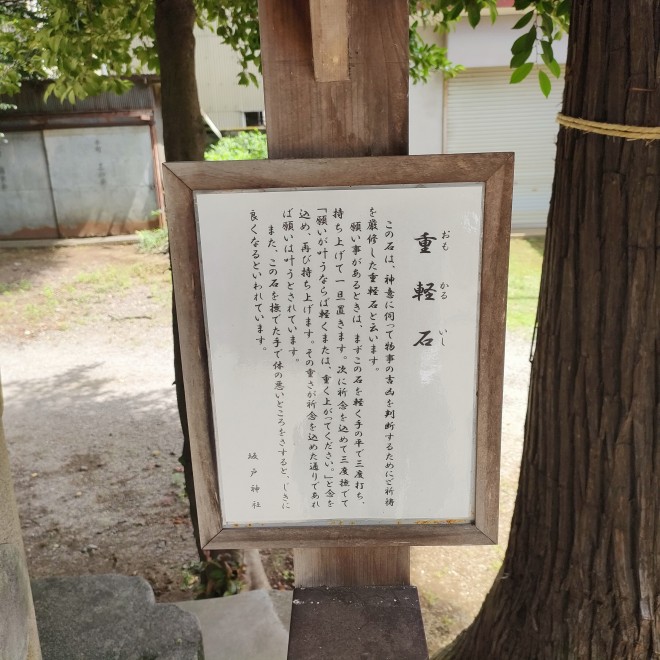 重軽石
おもかるいし
この石は、神意に伺って物事の吉凶を判断するためにご祈祷
を厳修した重軽石と云います。
願い事があるときは、まずこの石を軽く手の平で三度打ち、
持ち上げて一旦置きます。次に祈念を込めて三度撫でて
「願いが叶うならば軽くまたは、重く上がってください。」と念を
込め、再び持ち上げます。その重さが祈念を込めた通りであれ
ば願いは叶うとされています。
また、この石を撫でた手で体の悪いところをさすると、じきに
良くなるといわれています。
坂戸神社